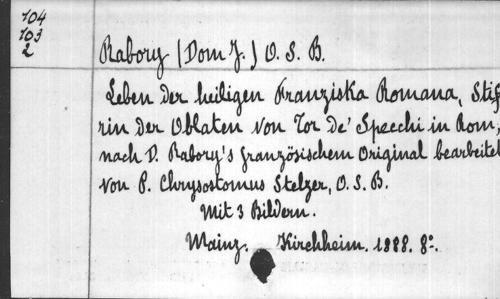 104
103
2
Rabory (Dom J.) O. S. B.
Leben der heiligen Franziska Romana, Stif-
rin der Oblaten von Tor de' Specchi in Rom,
nach D. Rabory's französischem Original bearbeitet
von P. Chrysostomus Stelzer, O. S. B.
Mit 3 Bildern.
Mainz. Kirchheim. 1888. 8°.